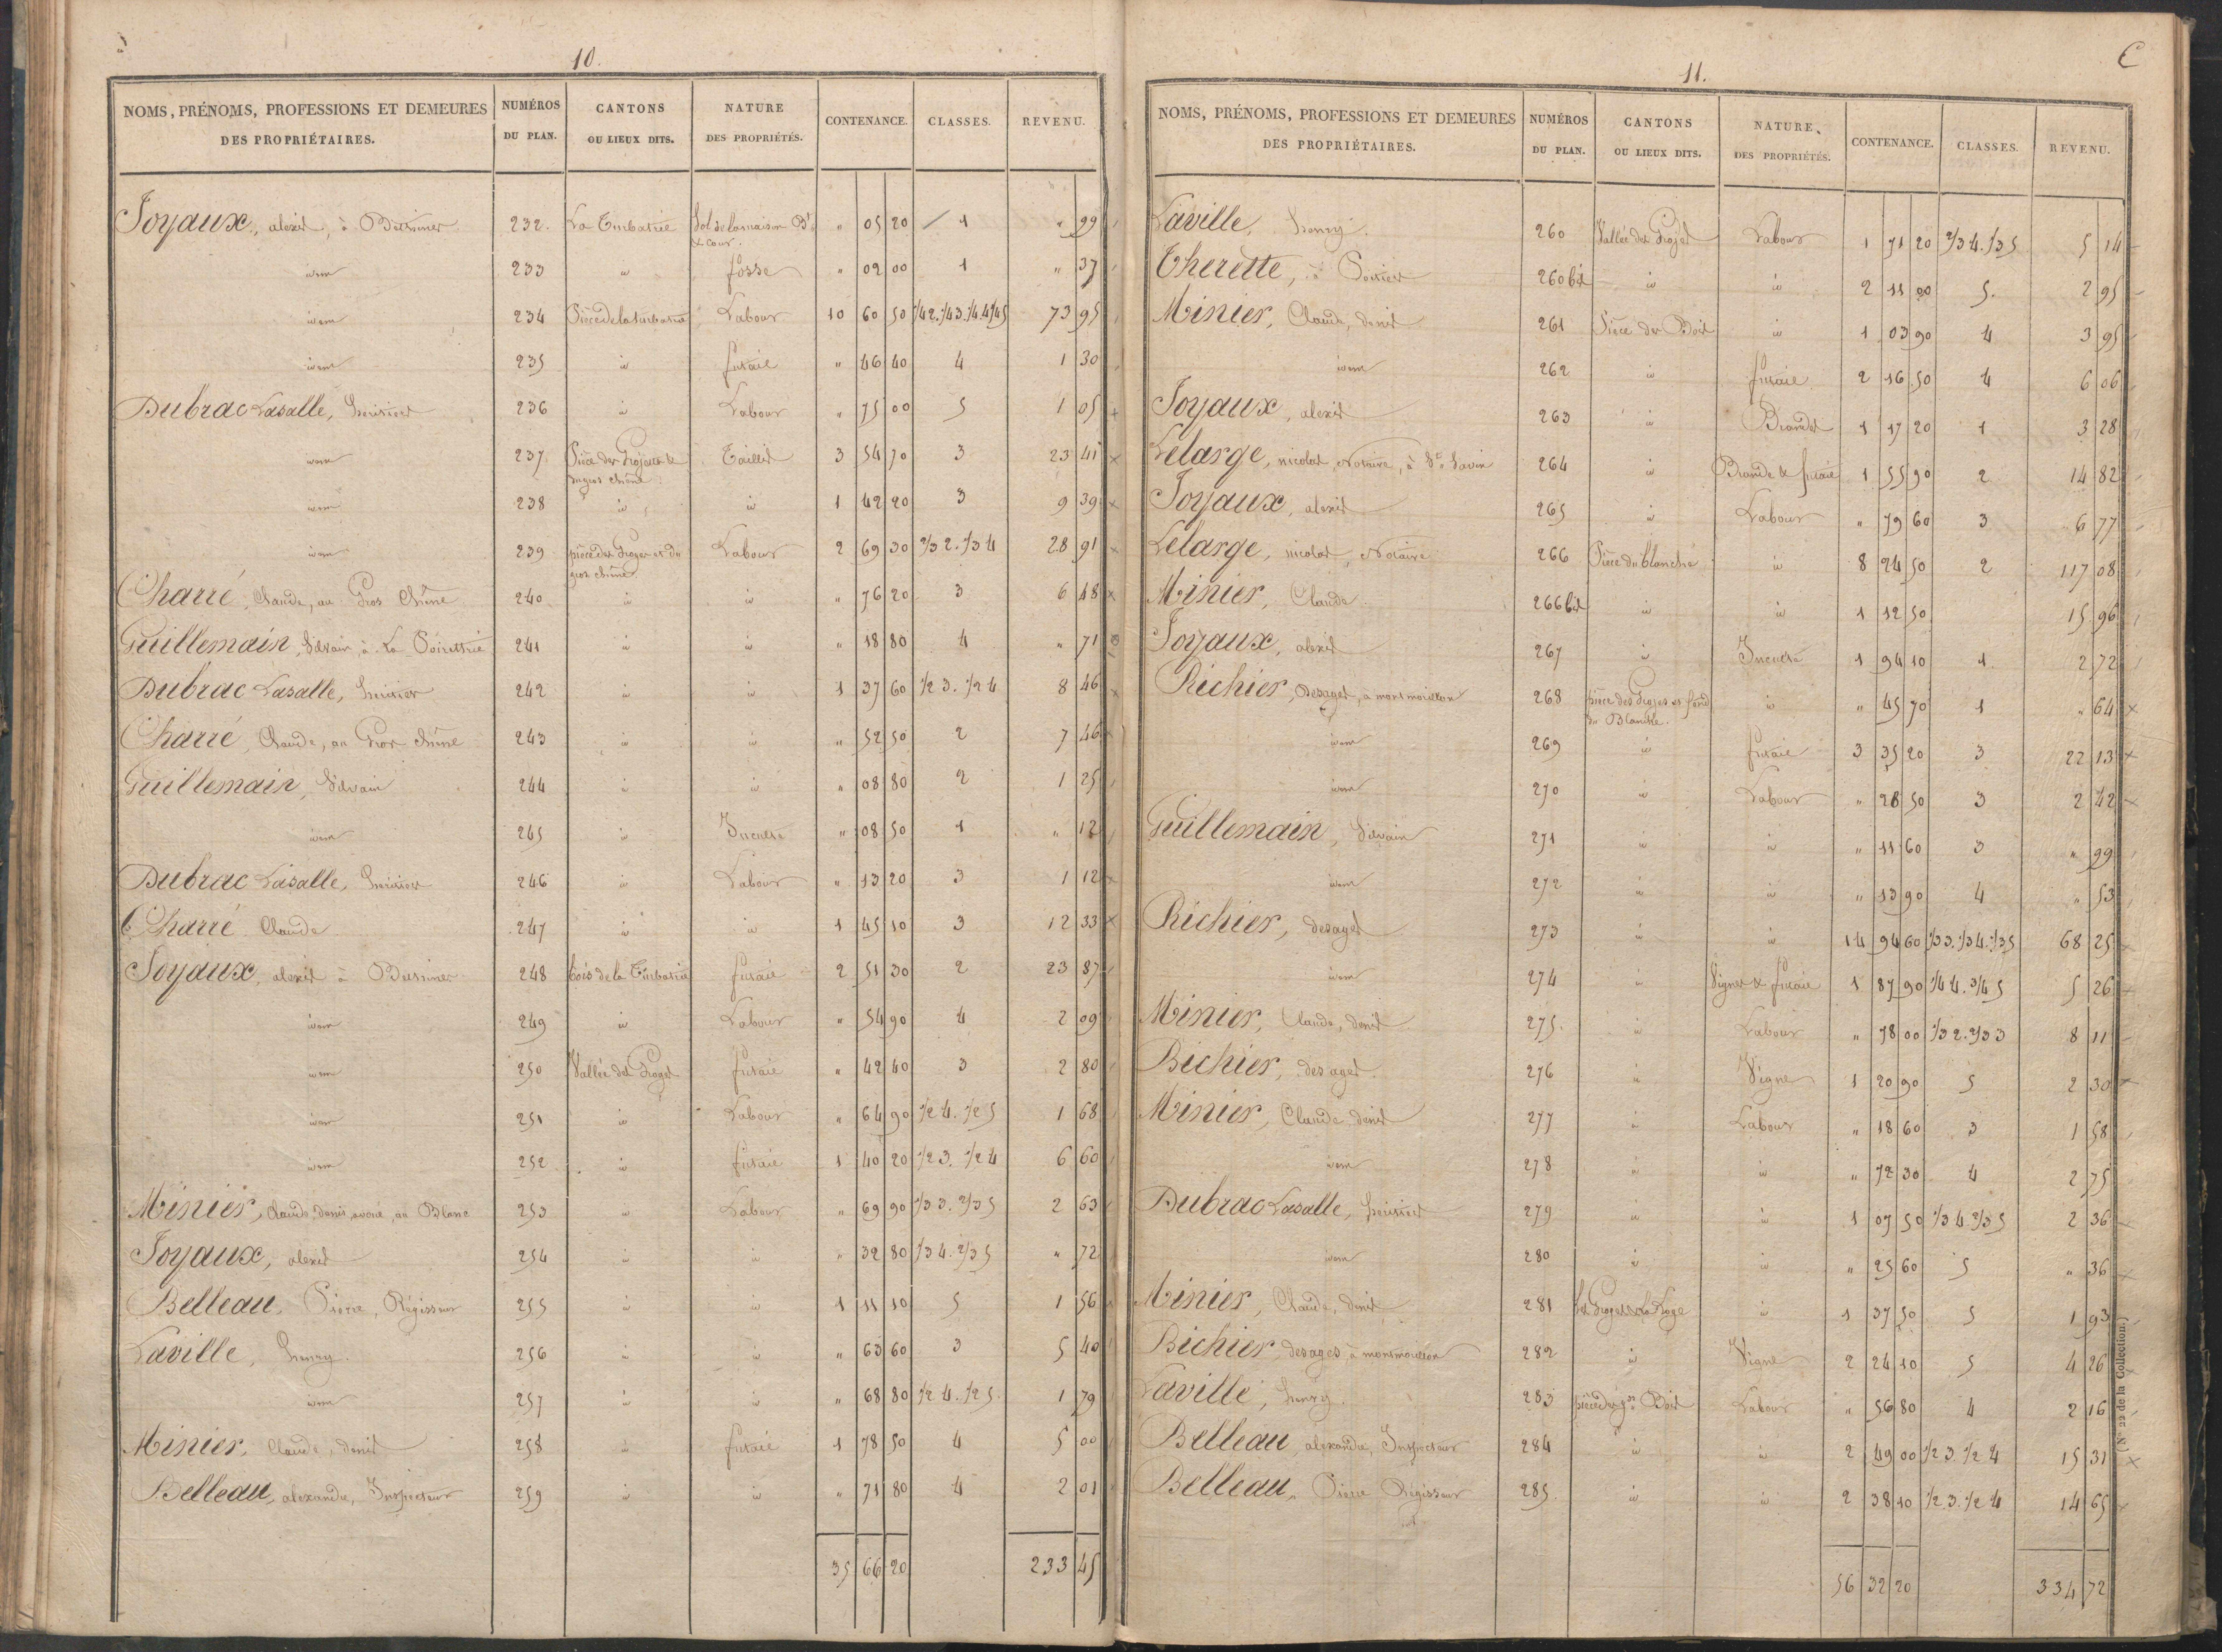 10.
NOMS, PRÉNOMS, PROFESSIONS ET DEMEURES DES PROPRIÉTAIRES. NUMÉROS DU PLAN. CANTONS OU LIEUX DITS. NATURE DES PROPRIÉTÉS. CONTENANCE. CLASSES. REVENU.
Joyaux, alexis, à 232. La Turbatrie Sol de la maison Bt & cour. " 05 20 1 " 99
idem 233 id fosse " 02 00 1 " 37
idem 234 Pièce de la turbatrie Labour 10 60 50 1/4 2. 1/4 3. 1/4 4. 1/4 5 73 95
idem 235 id futaie " 46 40 4 1 30
Dubrac Lasalle, 236 id Labour " 75 00 5 1 05
idem 237 Pièce des & du gros chêne Taillis 3 54 70 3 23 41
idem 238 id id 1 42 20 3 9 39
idem 239 pièce des et du gros chêne Labour 2 69 30 2/3 2. 1/3 4 28 91
Charré, Claude, au Gros Chêne 240 id id " 76 20 3 6 48
Guillemain, Silvain, à La 241 id id " 18 80 4 " 71
Dubrac Lasalle, 242 id id 1 37 60 1/2 3. 1/2 4 8 46
Charré, Claude, au Gros chêne 243 id id " 52 50 2 7 46
Guillemain, Silvain 244 id id " 08 80 2 1 25
idem 245 id Inculte " 08 50 1 " 12
Dubrac Lasalle, 246 id Labour " 13 20 3 1 12
Charré Claude 247 id id 1 45 10 3 12 33
Joyaux, alexis à 248 bois de la Turbatrie futaie 2 51 30 2 23 87
idem 249 id Labour " 54 90 4 2 09
idem 250 Vallée des futaie " 42 40 3 2 80
idem 251 id Labour " 64 90 1/2 4. 1/2 5 1 68
idem 252 id futaie 1 40 20 1/2 3. 1/2 4 6 60
Minier, Claude, Denis, avoué, au Blanc 253 id Labour " 69 90 1/3 3. 2/3 5 2 63
Joyaux, alexis 254 id id " 32 80 1/3 4. 2/3 5 " 72
Belleau, Pierre, Régisseur 255 id id 1 11 10 5 1 56
Laville, henry. 256 id id " 63 60 3 5 40
idem 257 id id " 68 80 1/2 4. 1/2 5. 1 79
Minier, Claude, denis 258 id futaie 1 78 50 4 5 00
Belleau, alexandre, Inspecteur 259 id id " 71 80 4 2 01
35 66 20 233 45
11.
NOMS, PRÉNOMS, PROFESSIONS ET DEMEURES DES PROPRIÉTAIRES. NUMÉROS DU PLAN. CANTONS OU LIEUX DITS. NATURE DES PROPRIÉTÉS. CONTENANCE. CLASSES. REVENU.
Laville, henry. 260 Vallée des Labour 1 71 20 2/3 4. 1/3 5 5 14
Therette, à 260 bis id id 2 11 00 5. 2 95
Minier, Claude, denis 261 Pièce du Bois id 1 03 90 4 3 95
idem 262 id futaie 2 16 50 4 6 06
Joyaux, alexis 263 id Brandes 1 17 20 1 3 28
Lelarge, nicolas, Notaire, à St Savin 264 id Brande & futaie 1 55 90 2 14 82
Joyaux, alexis 265 id Labour " 79 60 3 6 77
Lelarge, nicolas, Notaire 266 Pièce du blanche id 8 24 50 2 117 08
Minier, Claude 266 bis id id 1 12 50 15 96
Joyaux, alexis 267 id Inculte 1 94 10 1 2 72
Richier, Desages, à montmorillon 268 pièce des et fond du Blanche. id " 45 70 1 " 64
idem 269 id futaie 3 35 20 3 22 13
idem 270 id Labour " 28 50 3 2 42
Guillemain, Silvain 271 id id " 11 60 3 " 99
idem 272 id id " 13 90 4 " 53
Richier, desages 273 id id 14 94 60 1/3 3. 1/3 4. 1/3 5 68 25
idem 274 id Vignes & futaie 1 87 90 1/4 4. 3/4 5 5 26
Minier, Claude, denis 275. id Labour " 78 00 1/3 2. 2/3 3 8 11
Bichier, desages. 276 id Vigne 1 20 90 5 2 30
Minier, Claude denis 277 id Labour " 18 60 3 1 58
idem 278 id id " 72 30 4 2 75
Dubrac Lasalle, 279 id id 1 07 50 1/3 4 2/3 5 2 36
idem 280 id id " 25 60 5 " 36
Minier, Claude, denis 281 id 1 37 50 5 1 93
Bichier desages, à montmorillon 282 id Vigne 2 24 10 5 4 26
Laville, henry. 283 pièce du gd Bois Labour " 56 80 4 2 16
Belleau, alexandre, Inspecteur 284 id id 2 49 00 1/2 3. 1/2 4 15 31
Belleau, Pierre Régisseur 285. id id 2 38 10 1/2 3. 1/2 4 14 65
56 32 20 334 72
(N° 22 de la Collection.)